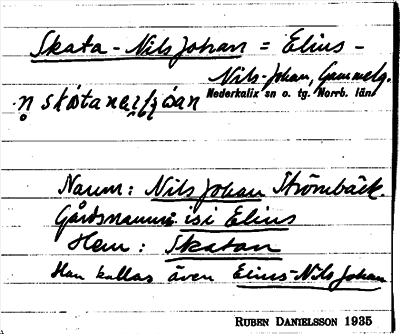 Skata-Nils Johan = Elius-
Nils-Johan, Gammelg.
Nederkalix sn o. tg. Norrb. län
Namn: Nils Johan Strömbäck.
Gårdsnamn: isi Elius
Hem: Skatan
Han kallas även Elius-Nils Johan
RUBEN DANIELSSON 1935